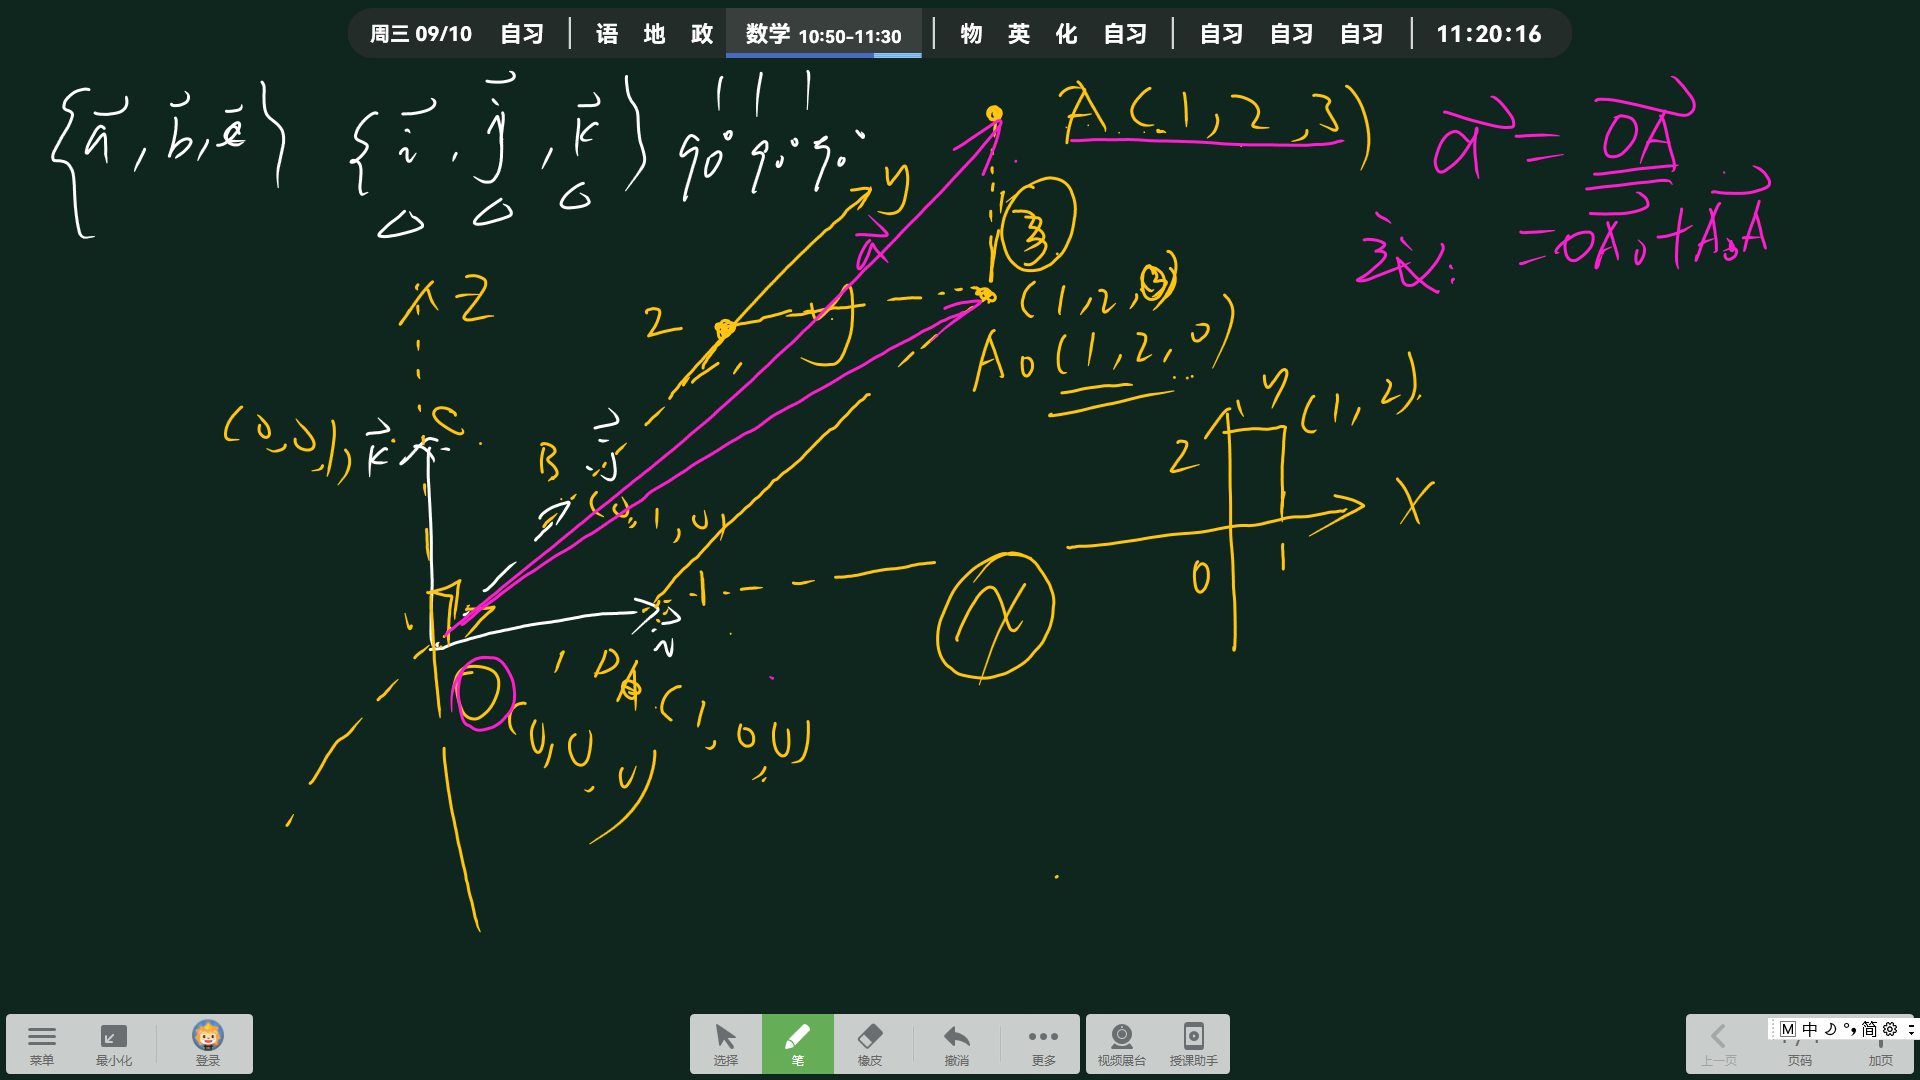 周三 09/10 自习 | 语 地 政 数学 10:50-11:30 | 物 英 化 自习 | 自习 自习 自习 | 11:20:16
{a, b, c} {i, j, k} 90° 90° 90°
A(1,2,3)
a = OA
= OA₀ + A₀A
y
a
3
Z
2
(1,2,3)
A₀(1,2,0)
y
(1,2)
2
X
0
1
(0,0,1)
k
C
B
j
(0,1,0)
1
x
i
O
(0,0,0)
1
D
(1,0,0)
菜单 最小化 登录 选择 笔 橡皮 撤消 更多 视频展台 授课助手 上一页 页码 加页
M 中 简